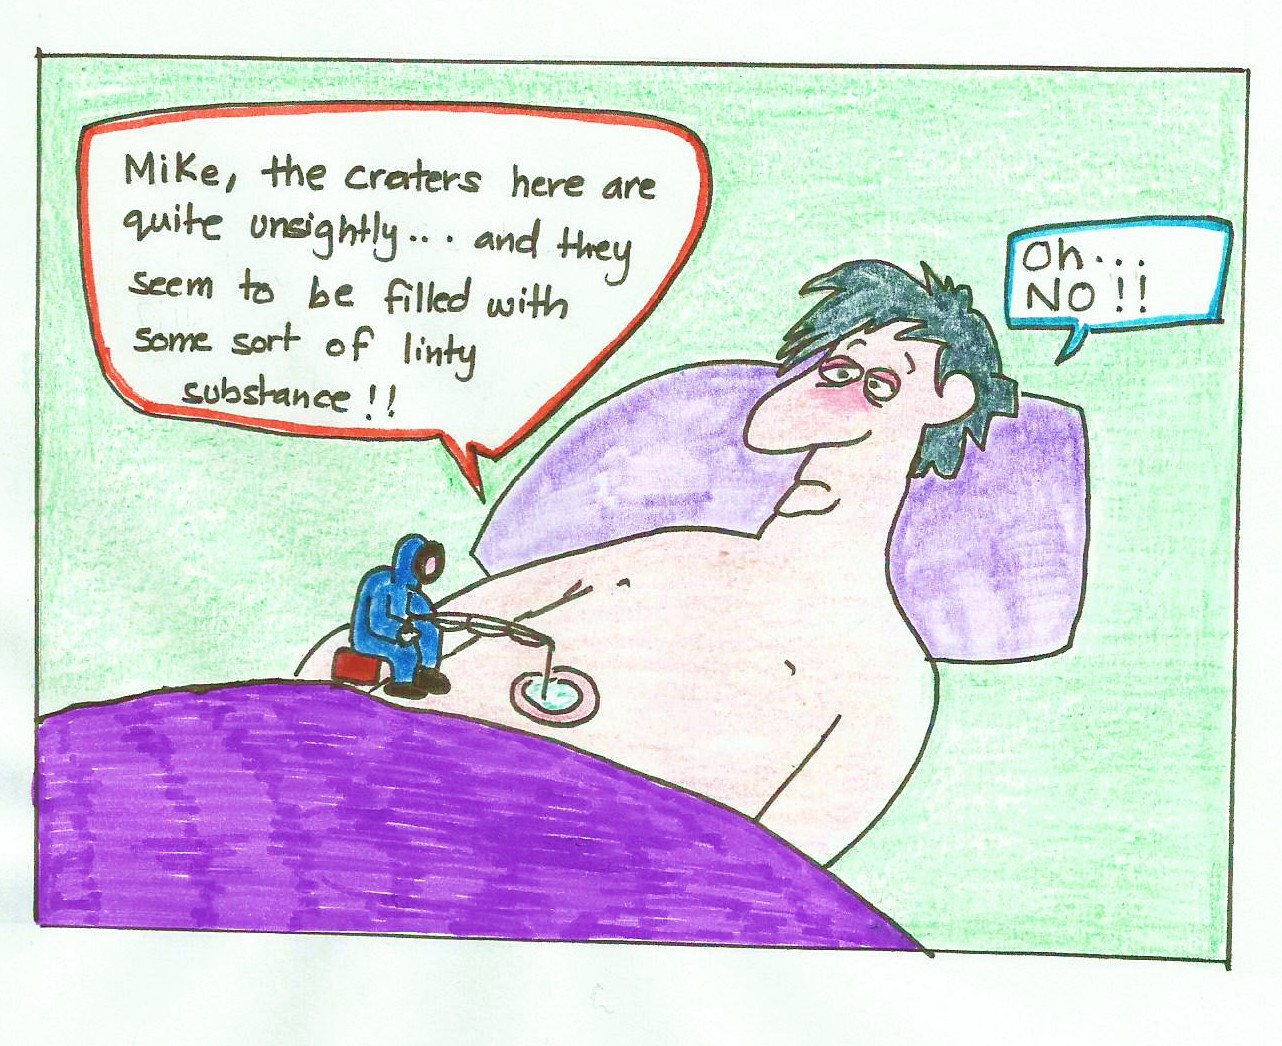 Mike, the craters here are
quite unsightly... and they
seem to be filled with
some sort of linty
substance!!
Oh...
NO!!